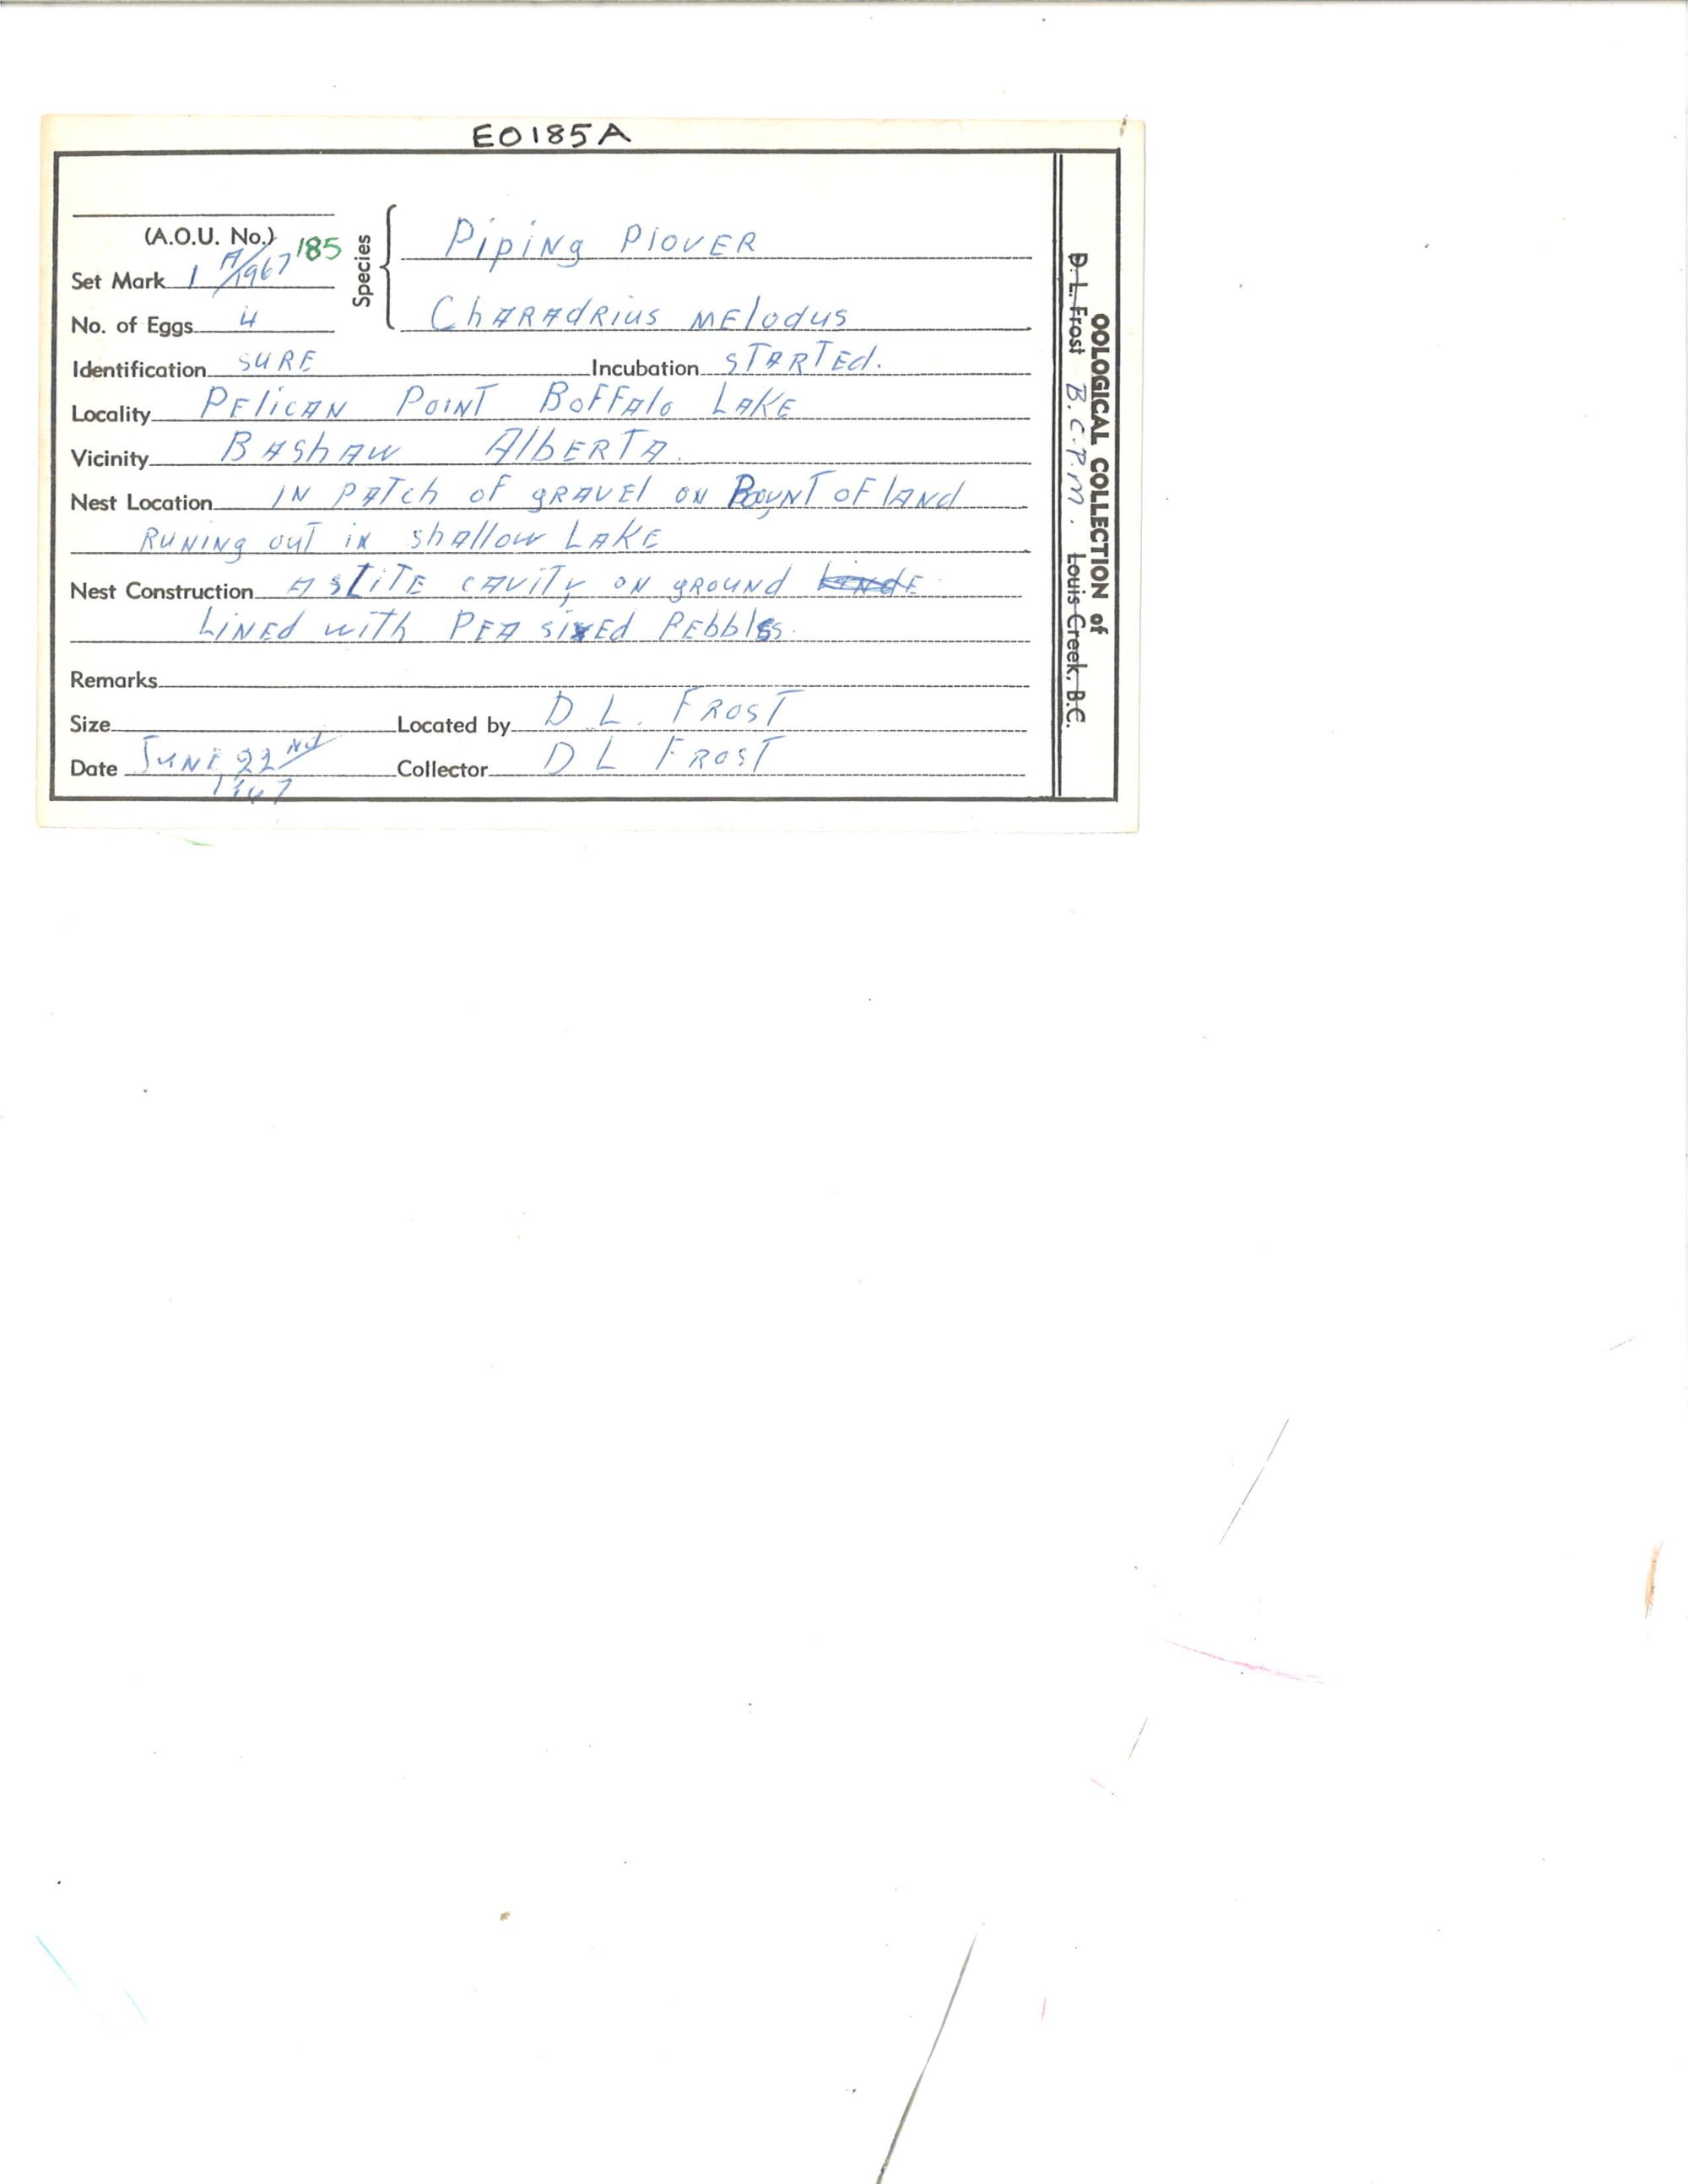 E0185A
(A.O.U. No.) 185
Set Mark 1 A/1967
No. of Eggs 4
Species
Piping Plover
Charadrius melodus
Identification SURE Incubation STARTEd.
Locality PEliCAN POINT BOFFAlo LAKE
Vicinity BAShAW AlbERTA.
Nest Location IN PATch oF gRAVEl ON POYNT OF lANd
RUNINg ouT iN shAllow LAKE
Nest Construction A sliTE CAViTy ON gROUNd
LiNEd with PEA sizEd PEbblEs.
Remarks
Size Located by D L. FROST
Date JUNE 22 Nd Collector D L FROST
1967
OOLOGICAL COLLECTION of
D. L. Frost B.C.P.M. Louis Creek, B.C.